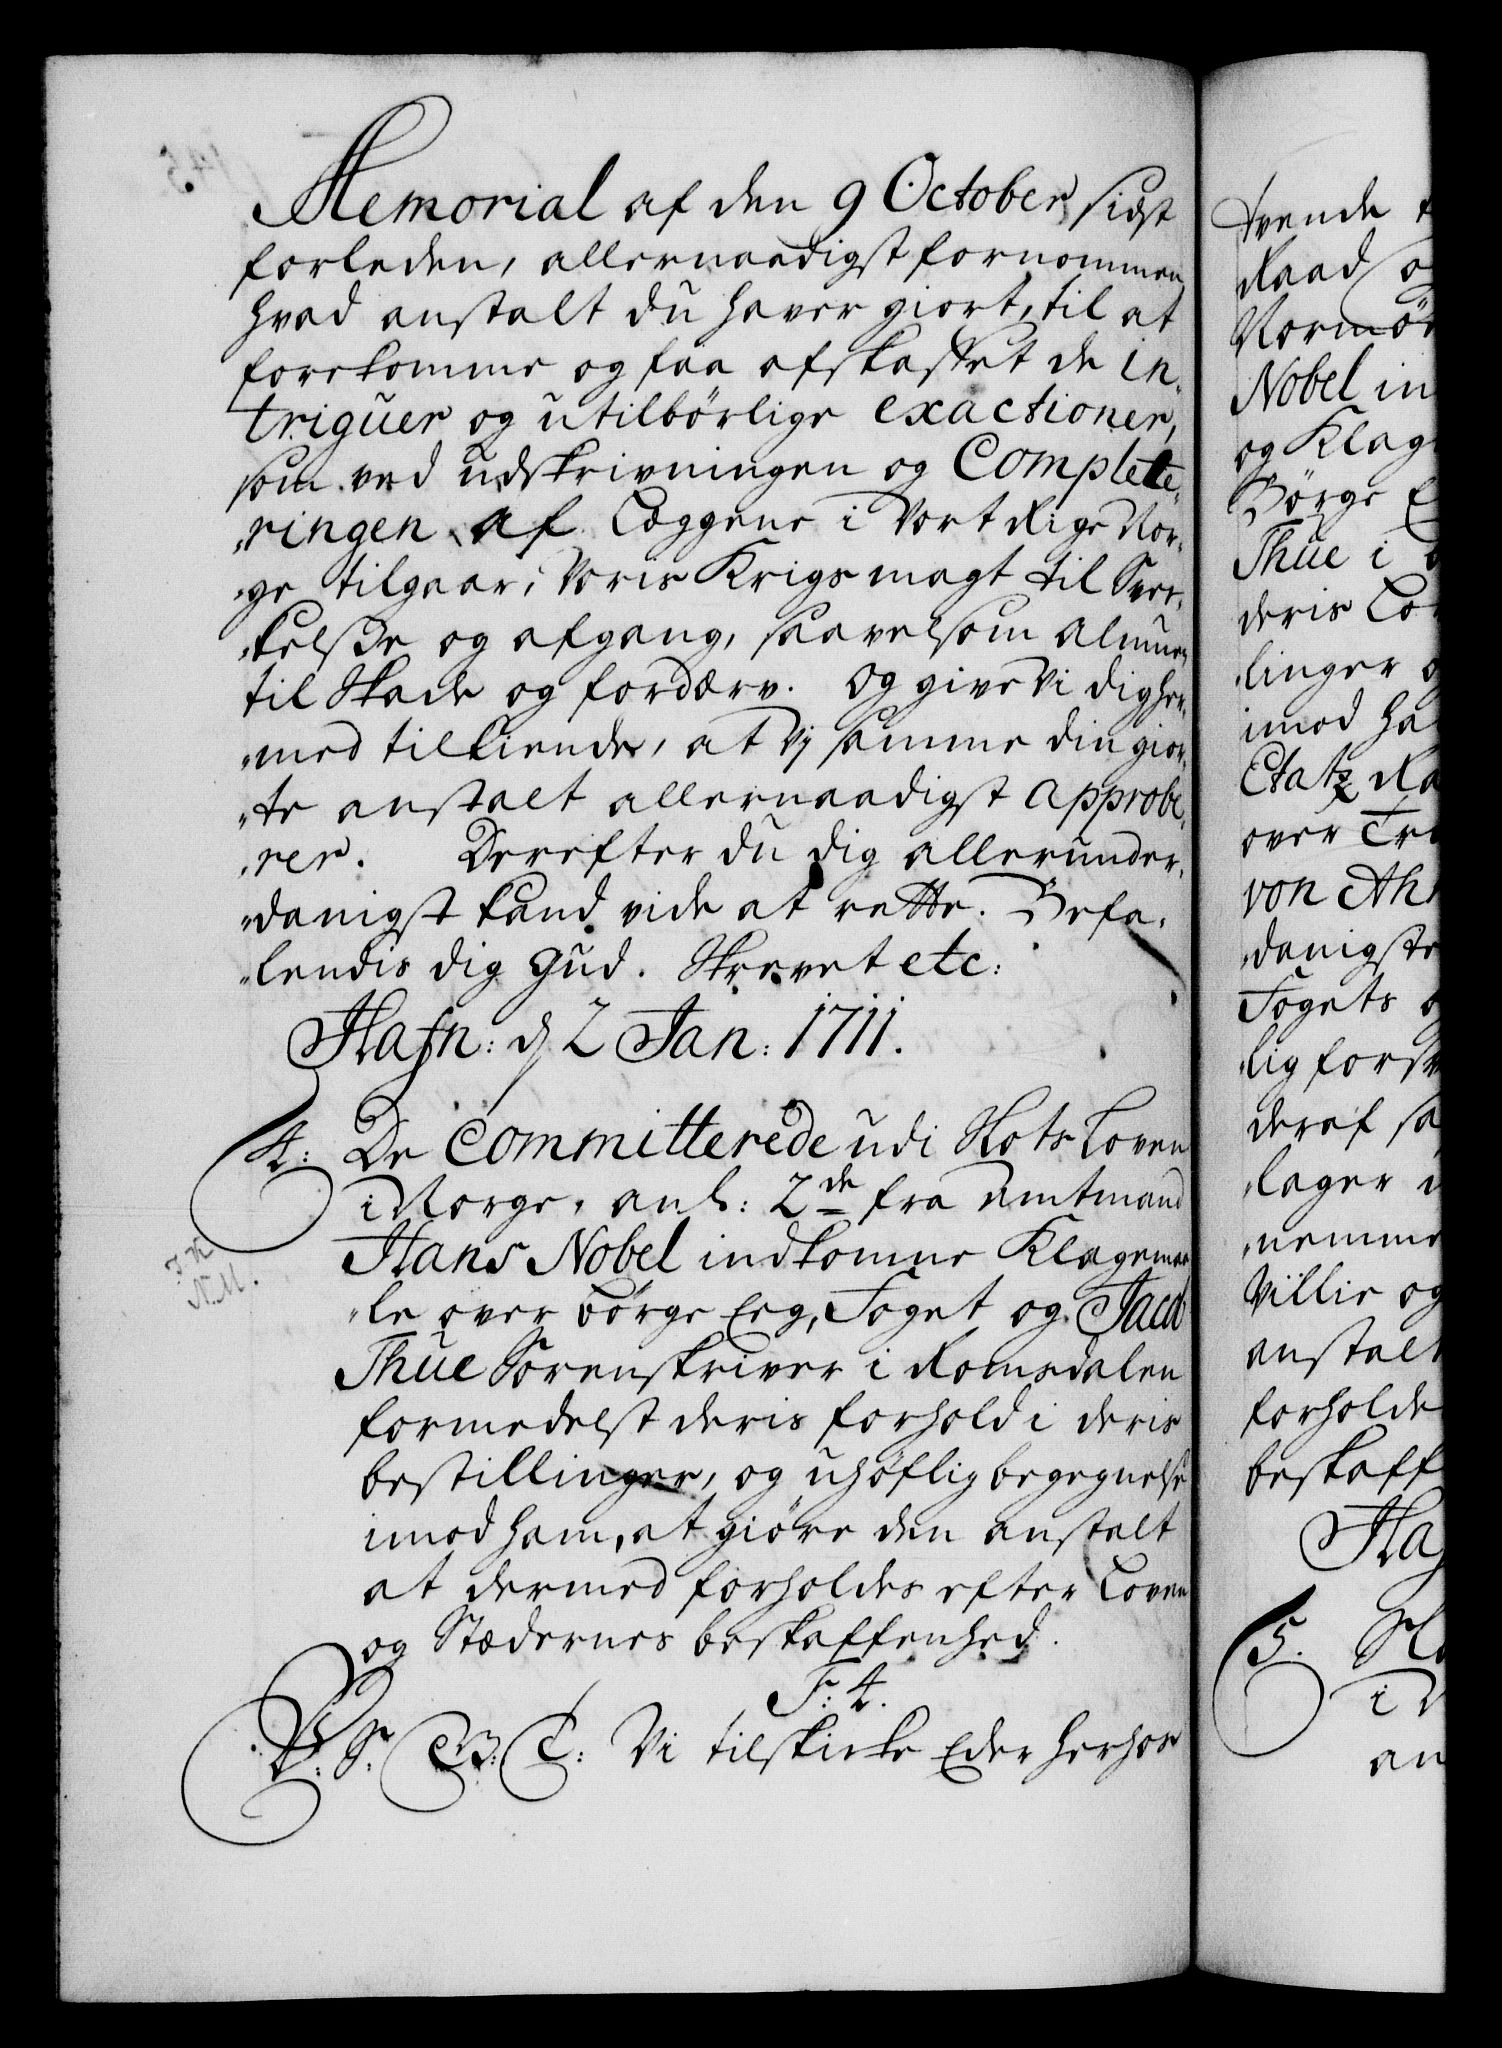 Memorial af den 9 October sidst
forleden, allernaadigst fornommen
hvad anstalt du haver giort, til at
forekomme og faa afskaffet de in-
triguer og utilbörlige exactioner,
som ved udskrivningen og Complete-
ringen af Læggene i Vort Rige Nor-
ge tilgaar, Voris Krigsmagt til Svec-
kelse og afgang, saavelsom almuen
til Skade og fordærv. Og give Vi dig her-
med tilkiende, at Vi samme din gior-
te anstalt allernaadigst approbe-
rer. Derefter du dig allerunder-
danigst kand vide at rette. Befa-
lendis dig Gud. Skrevet etc:
Hafn: d 2 Jan: 1711.
4: De Committerede udi Slots Loven
i Norge, anl: 2de fra Amtmand
Hans Nobel indkomne Klagemaa-
le over Börge Eeg, Foget og Jacob
Thue Sorenskriver i Romsdalen
formedelst deris forhold i deris
bestillinger, og uhöflig begegnelse
imod ham, at giöre den anstalt
at dermed forholdes efter Loven
og Stædernes beskaffenhed.
F: 4.
V: S: G: B: T: Vi tilskicke Eder herhos
tvende
Raad
Nobel in
og Klag
Börge E
Thue i
deris
linger
imod ha
Etatz Ra
over
von Ah
danigste
Fogets
lig forsv
deraf sa
lager
nemme
Villie og
anstalt
forholde
beskaff
Haf
5.
i N
an